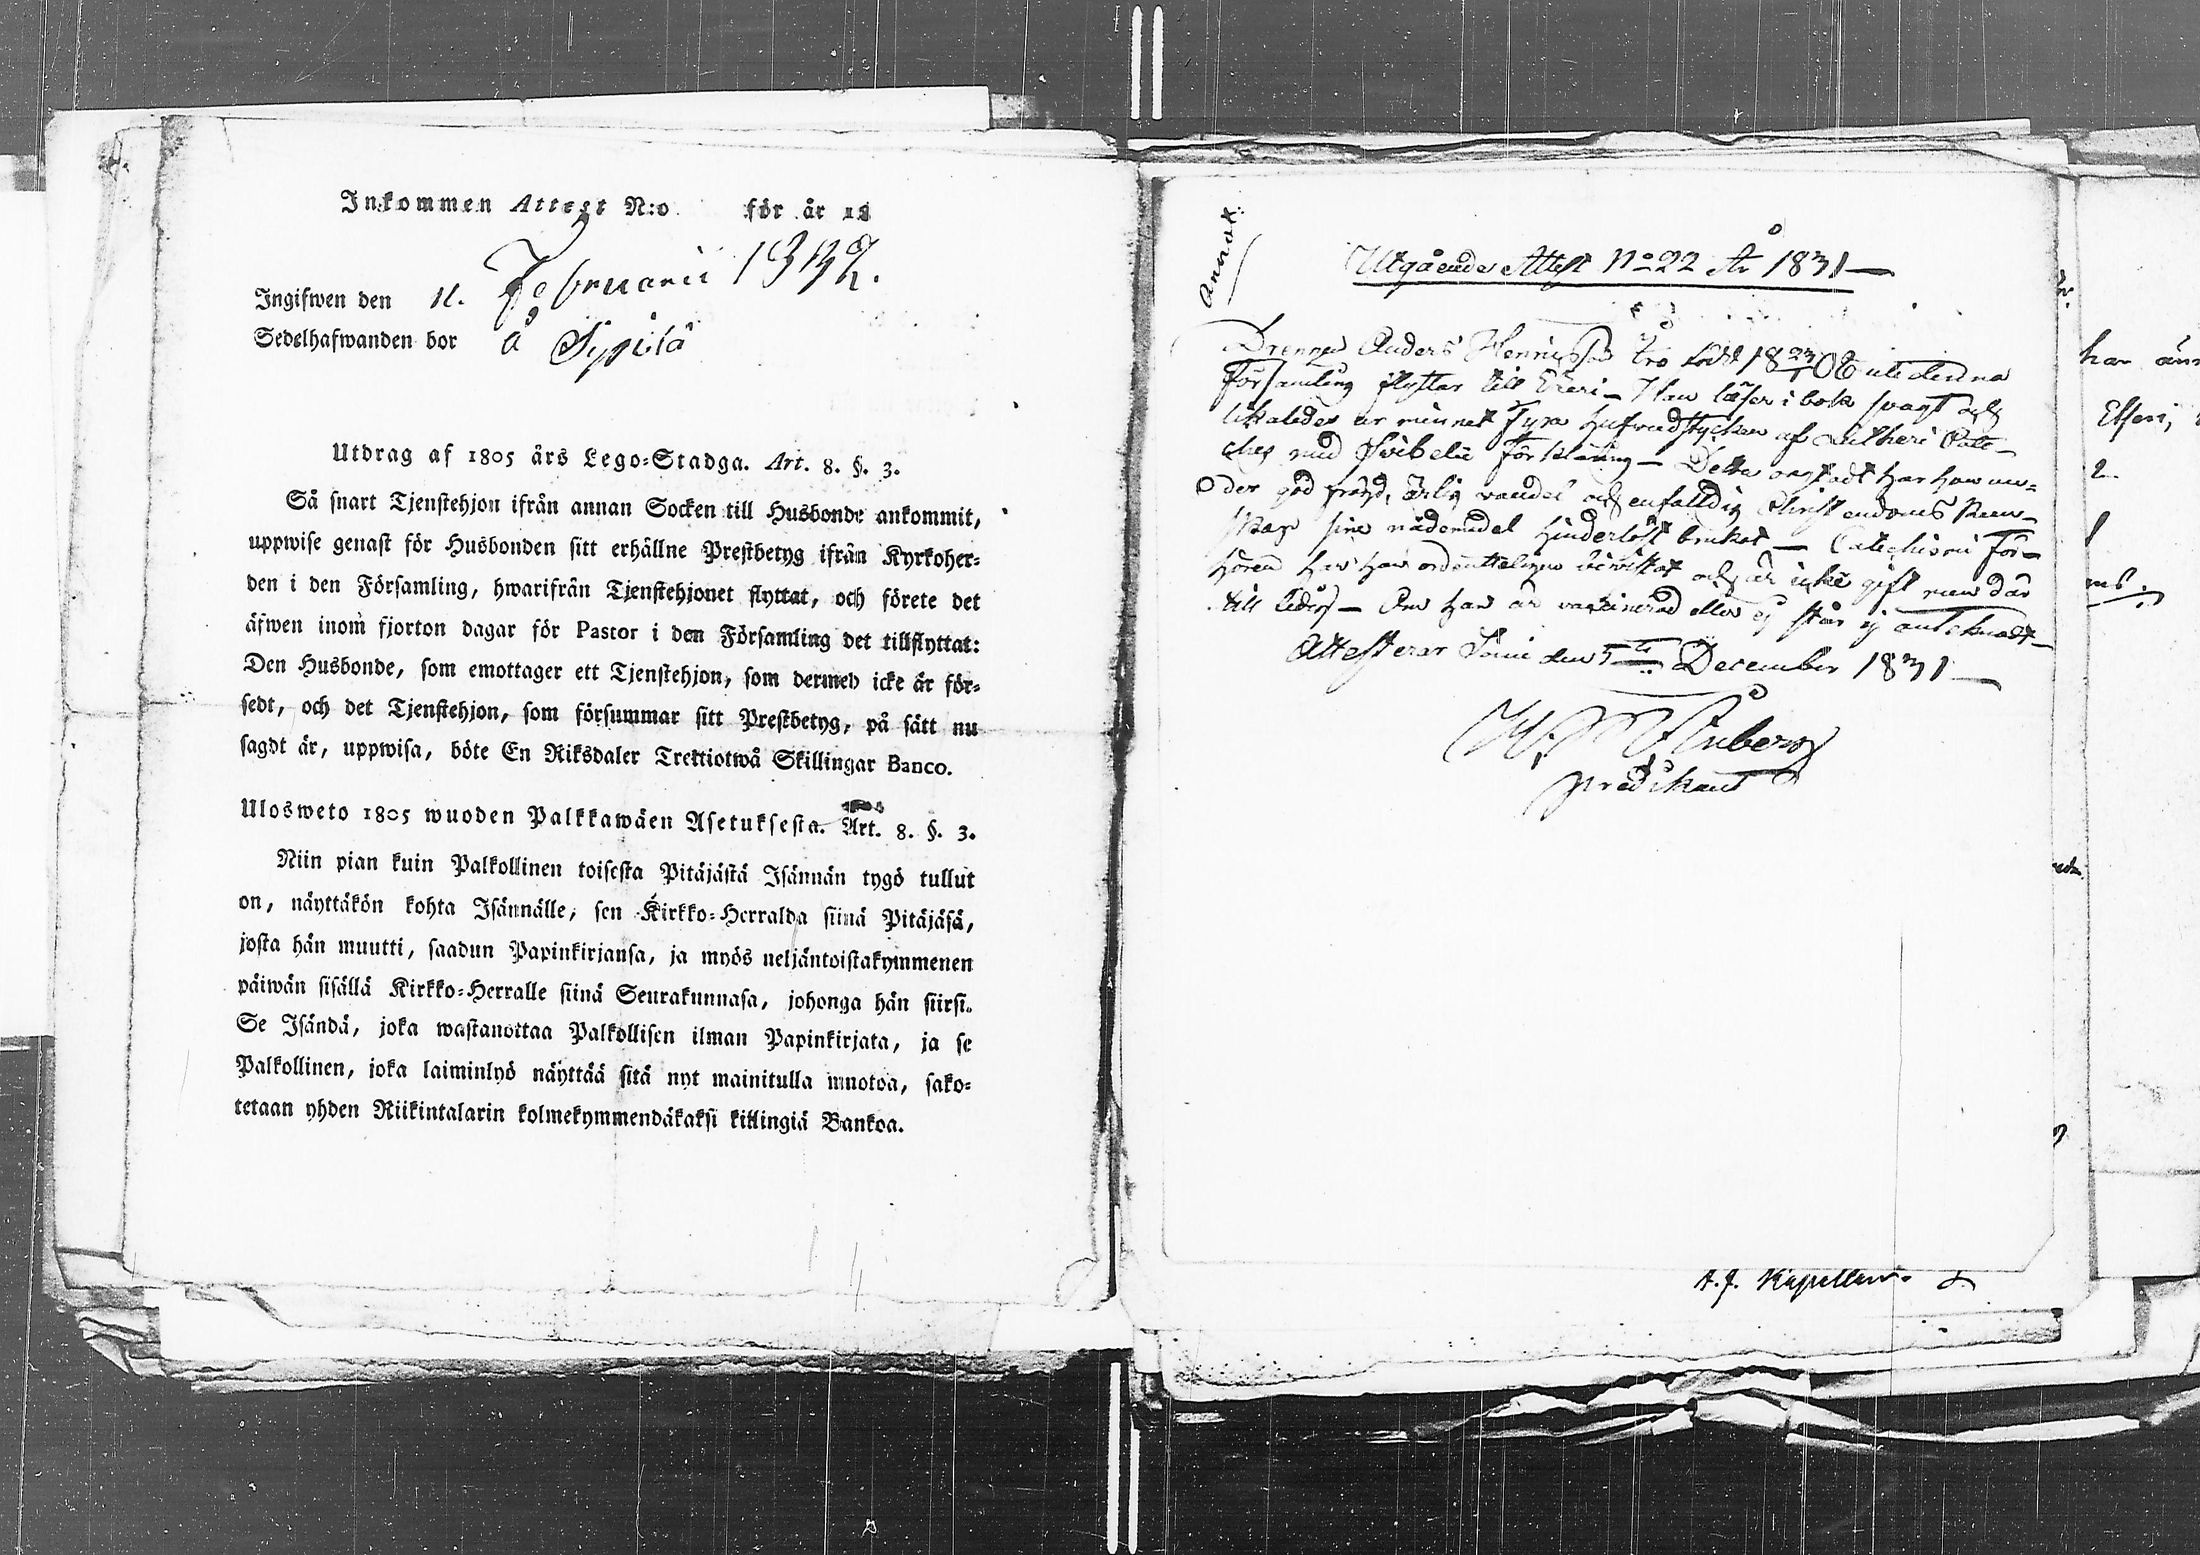 Inkommen Attest N:o för år 18
Ingifwen den 11. Februarii 1832.
Sedelhafwanden bor å Sypilä
Utdrag af 1805 års Lego-Stadga. Art. 8. §. 3.
Så snart Tjenstehjon ifrån annan Socken till Husbonde ankommit,
uppwise genast för Husbonden sitt erhållne Prestbetyg ifrån Kyrkoher-
den i den Församling, hwarifrån Tjenstehjonet flyttat, och förete det
äfwen inom fjorton dagar för Pastor i den Församling det tillflyttat:
Den Husbonde, som emottager ett Tjenstehjon, som dermed icke är för-
sedt, och det Tjenstehjon, som försummar sitt Prestbetyg, på sätt nu
sagdt är, uppwisa, böte En Riksdaler Trettiotwå Skillingar Banco.
Ulosweto 1805 wuoden Palkkawäen Asetuksesta. Art. 8. §. 3.
Niin pian kuin Palkollinen toisesta Pitäjästä Isännän tygö tullut
on, näyttäkön kohta Isännälle, sen Kirkko-Herralda siinä Pitäjäsä,
josta hän muutti, saadun Papinkirjansa, ja myös neljäntoistakymmenen
päiwän sisällä Kirkko-Herralle siinä Seurakunnasa, johonga hän siirsi.
Se Isändä, joka wastanottaa Palkollisen ilman Papinkirjata, ja se
Palkollinen, joka laiminlyö näyttää sitä nyt mainitulla muotoa, sako-
tetaan yhden Riikintalarin kolmekymmendäkaksi killingiä Bankoa.
Utgående Attest No 22 År 1831
Drengen Anders Henricsson född 18 denna
Församling flyttar till Everi - Han läser i bok svagt och
likaledes ur minnet Fyra Hufvudstycken af Lutheri Cate-
ches med Svibelii Förklaring - Detta oagtadt har han un-
der god fräjd, ärlig vandel och enfalldig Christendoms kun-
skap sine nådemedel hinderlöst brukat - Catechismi För-
hören har han ordenteligen bevistat och är icke gift men där
till ledig - Om han är vaccinerad eller ej står ej antecknadt -
Attesterar Somie den 5te December 1831
predikant
A.J. Kapellan.
har änn
2.